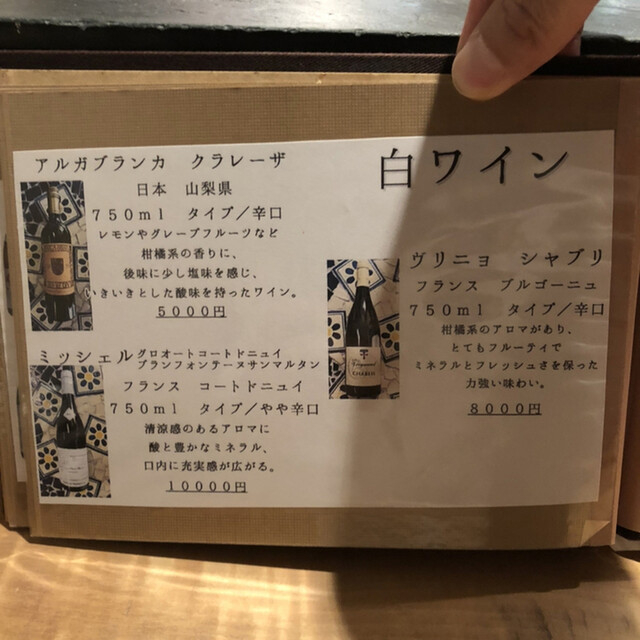 白ワイン
アルガブランカ クラレーザ
日本 山梨県
750ml タイプ/辛口
レモンやグレープフルーツなど
柑橘系の香りに、
後味に少し塩味を感じ、
いきいきとした酸味を持ったワイン。
5000円
ミッシェル グロオートコートドニュイ
ブランフォンテーヌサンマルタン
フランス コートドニュイ
750ml タイプ/やや辛口
清涼感のあるアロマに
酸と豊かなミネラル、
口内に充実感が広がる。
10000円
ヴリニョ シャブリ
フランス ブルゴーニュ
750ml タイプ/辛口
柑橘系のアロマがあり、
とてもフルーティで
ミネラルとフレッシュさを保った
力強い味わい。
8000円
CHABLIS